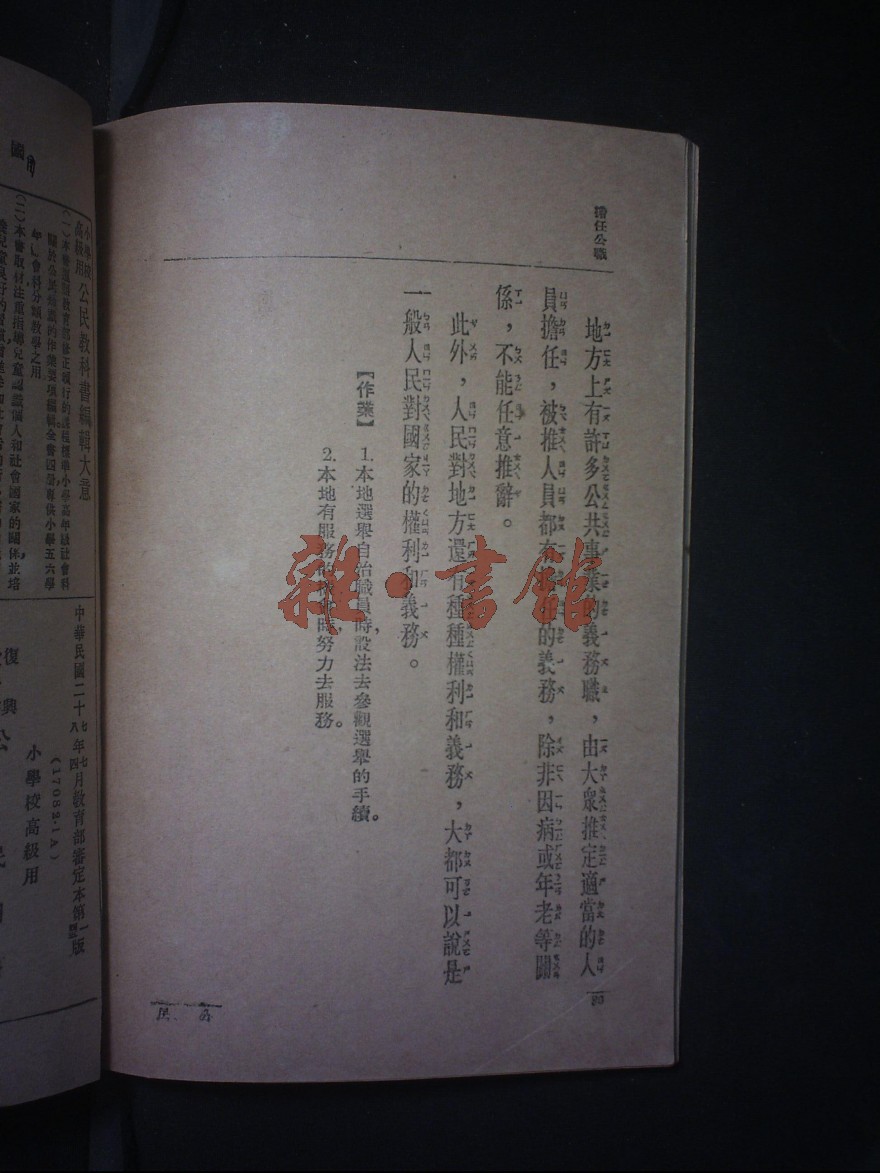 擔任公職
地方上有許多公共事業的義務職，由大衆推定適當的人
員擔任，被推人員都有的義務，除非因病或年老等關
係，不能任意推辭。
此外，人民對地方還有種種權利和義務，大都可以說是
一般人民對國家的權利和義務。
【作業】 1.本地選舉自治職員時，設法去參觀選舉的手續。
2.本地有服務的時，努力去服務。
雜·書館
小學校高級用 公民教科書編輯大意
（二）本書取材注重指導兒童認識個人和社會國家的關係，並培
年 社會科分類教學之用
中華民國二十年月教育部審定本第一版
（17082·1A）
小學校高級用
復興公